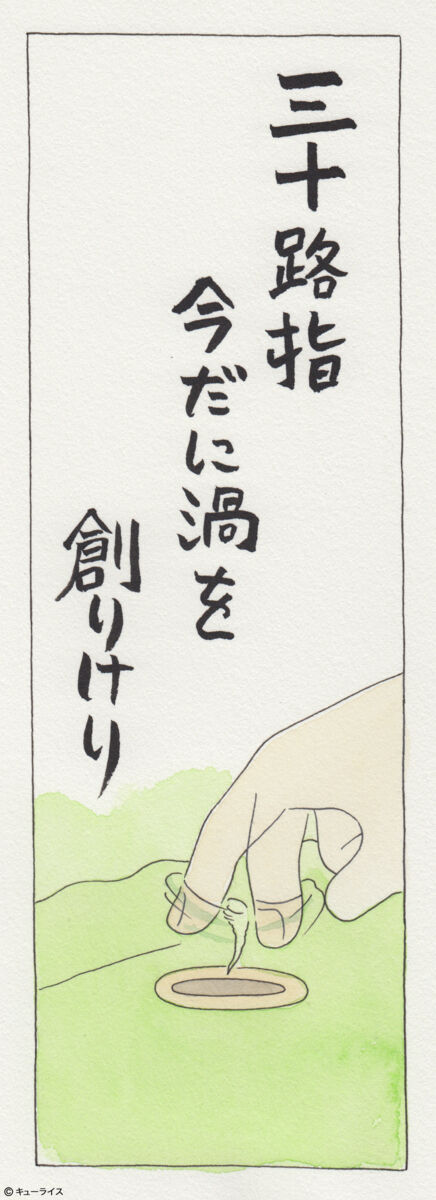 三十路指
今だに渦を
創りけり
© キューライス